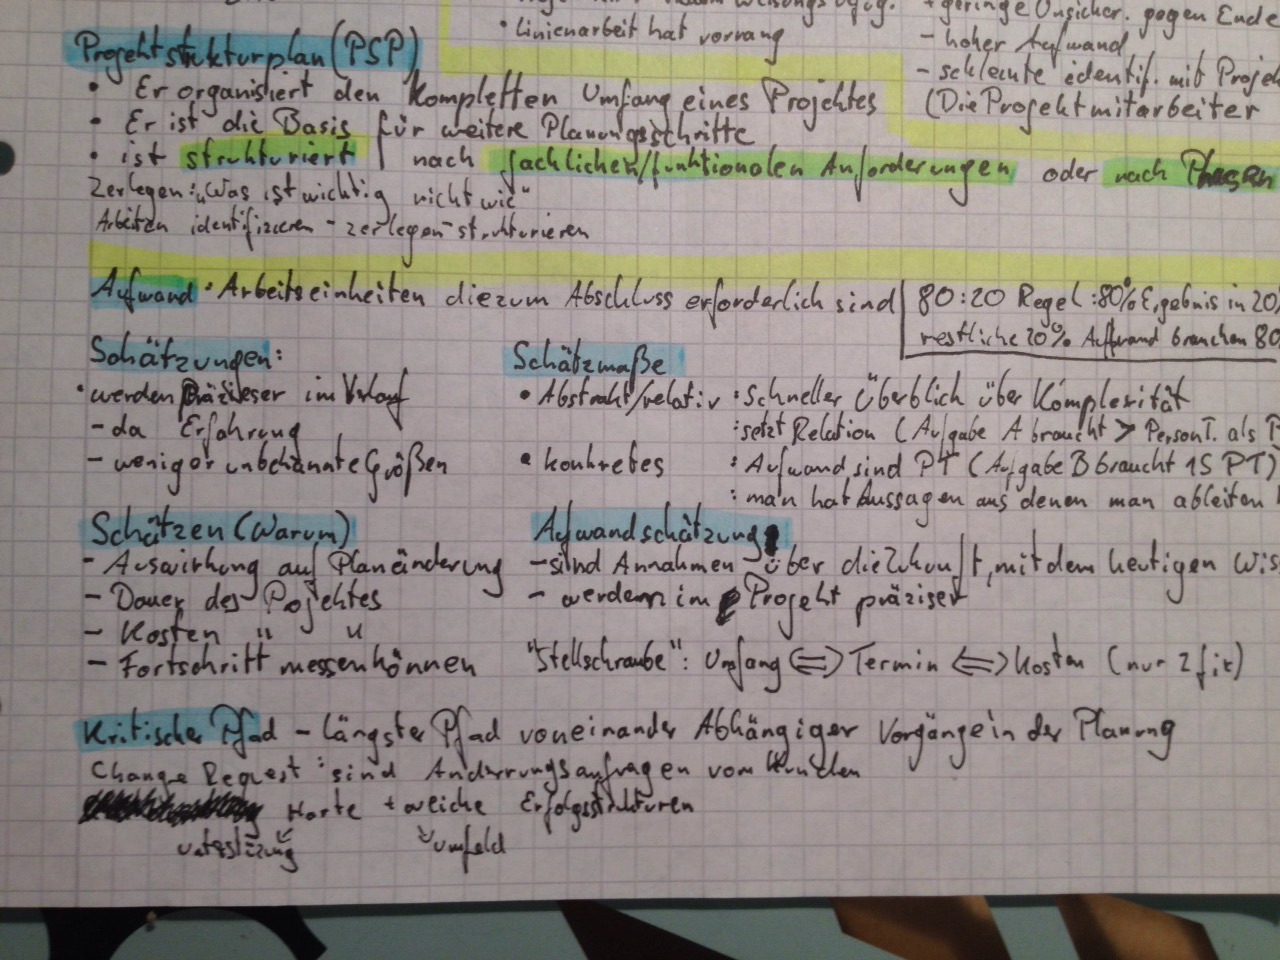 • Linienarbeit hat vorrang
+ geringe Unsicher. gegen Ende
- hoher Aufwand
- schlechte identif. mit Projek
(Die Projektmitarbeiter
Projektstrukturplan (PSP)
• Er organisiert den kompletten Umfang eines Projektes
• Er ist die Basis für weitere Planungsschritte
• ist strukturiert nach fachlichen/funktionalen Anforderungen oder nach Phasen
Zerlegen: "Was ist wichtig nicht wie"
Arbeiten identifizieren - zerlegen - strukturieren
Aufwand • Arbeitseinheiten die zum Abschluss erforderlich sind
80:20 Regel: 80% Ergebnis in 20%
restliche 20% Aufwand brauchen 80
Schätzungen:
• werden präzieser im Verlauf
- da Erfahrung
- weniger unbekannte Größen
Schätzmaße
• Abstrakt/relativ : Schneller Überblich über Komplexität
: setzt Relation (Aufgabe A braucht > Person T. als
• konkretes : Aufwand sind PT (Aufgabe B braucht 15 PT)
: man hat Aussagen aus denen man ableiten
Schätzen (Warum)
- Auswirkung auf Planänderung
- Dauer des Projektes
- Kosten " "
- Fortschritt messen können
Aufwandschätzung
- sind Annahmen über die Zukunft, mit dem heutigen Wis
- werden im Projekt präziser
"Stellschraube": Umfang <=> Termin <=> Kosten (nur 2 fix)
Kritischer Pfad - längster Pfad voneinander Abhängiger Vorgänge in der Planung
Change Request : sind Änderungsanfragen vom Kunden
Harte + weiche Erfolgsstrukturen
Umfeld